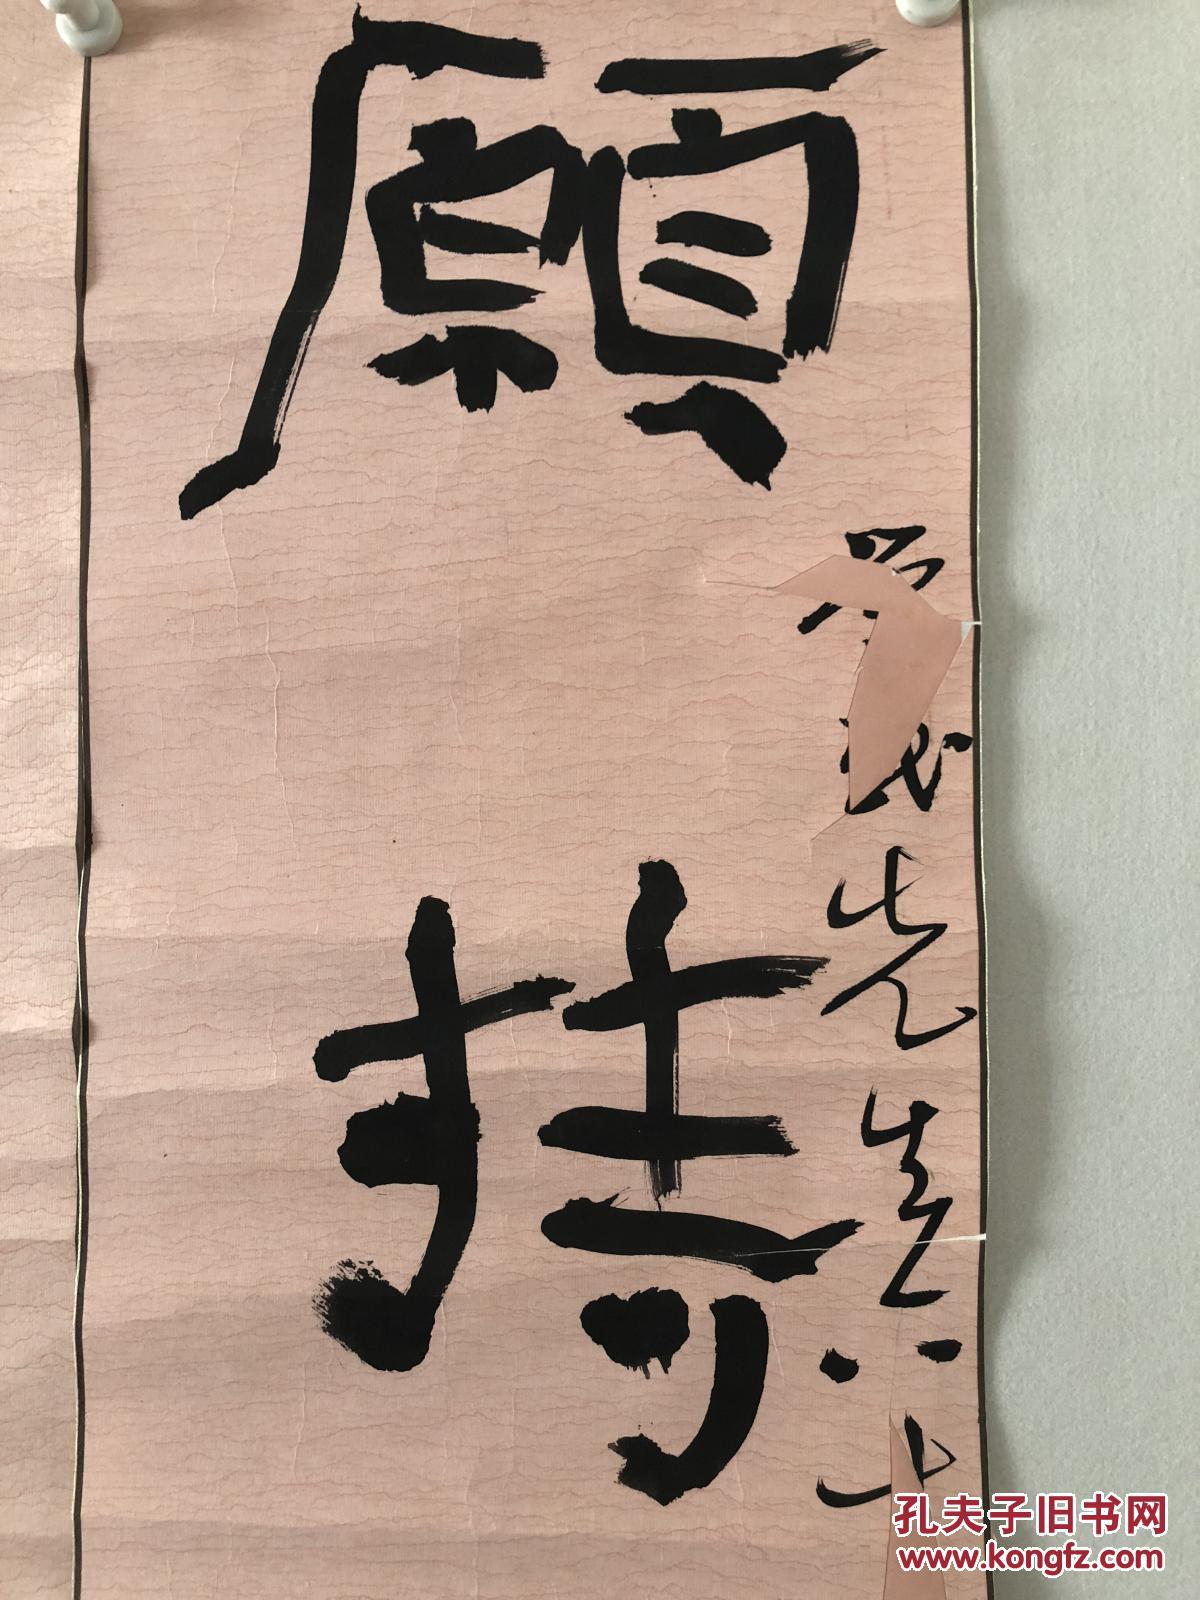 願持
先生正
孔夫子旧书网
www.kongfz.com